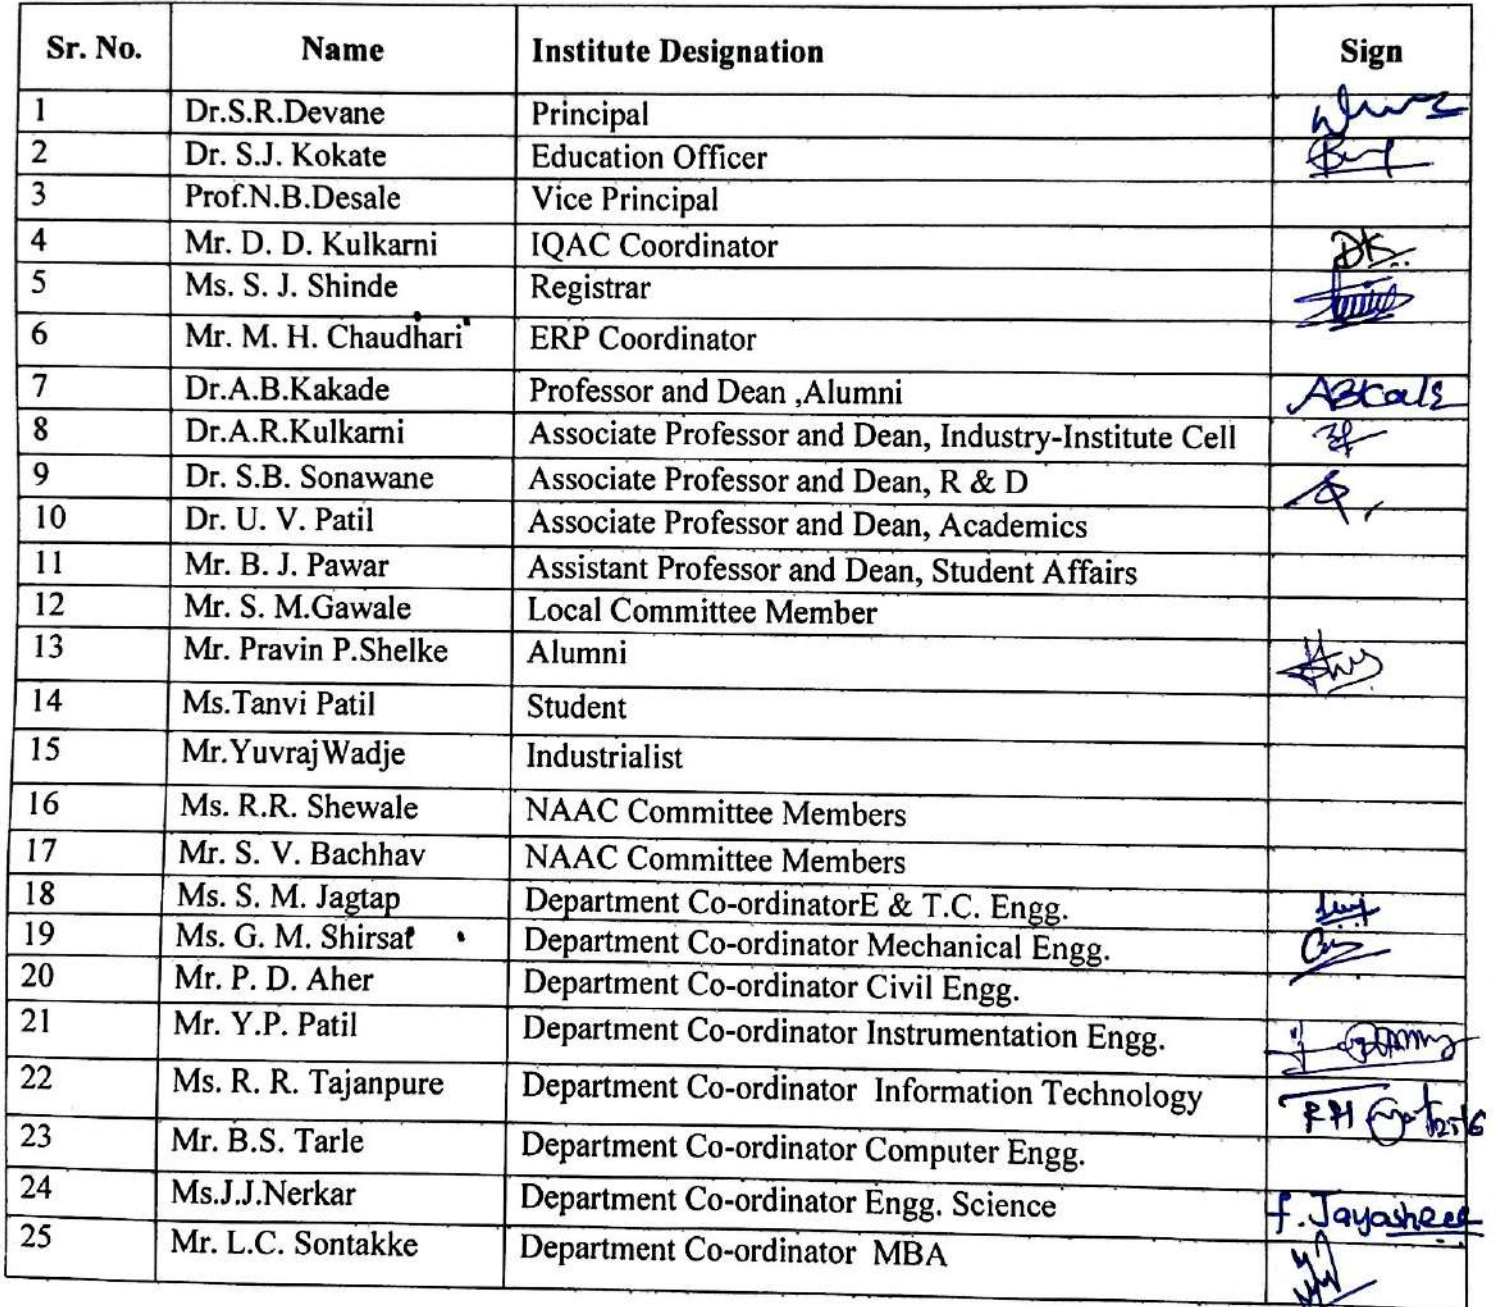 Sr. No. Name Institute Designation Sign
1 Dr.S.R.Devane Principal
2 Dr. S.J. Kokate Education Officer
3 Prof.N.B.Desale Vice Principal
4 Mr. D. D. Kulkarni IQAC Coordinator
5 Ms. S. J. Shinde Registrar
6 Mr. M. H. Chaudhari ERP Coordinator
7 Dr.A.B.Kakade Professor and Dean ,Alumni
8 Dr.A.R.Kulkarni Associate Professor and Dean, Industry-Institute Cell
9 Dr. S.B. Sonawane Associate Professor and Dean, R & D
10 Dr. U. V. Patil Associate Professor and Dean, Academics
11 Mr. B. J. Pawar Assistant Professor and Dean, Student Affairs
12 Mr. S. M.Gawale Local Committee Member
13 Mr. Pravin P.Shelke Alumni
14 Ms.Tanvi Patil Student
15 Mr.YuvrajWadje Industrialist
16 Ms. R.R. Shewale NAAC Committee Members
17 Mr. S. V. Bachhav NAAC Committee Members
18 Ms. S. M. Jagtap Department Co-ordinatorE & T.C. Engg.
19 Ms. G. M. Shirsat Department Co-ordinator Mechanical Engg.
20 Mr. P. D. Aher Department Co-ordinator Civil Engg.
21 Mr. Y.P. Patil Department Co-ordinator Instrumentation Engg.
22 Ms. R. R. Tajanpure Department Co-ordinator Information Technology
23 Mr. B.S. Tarle Department Co-ordinator Computer Engg.
24 Ms.J.J.Nerkar Department Co-ordinator Engg. Science f. Jayashree
25 Mr. L.C. Sontakke Department Co-ordinator MBA